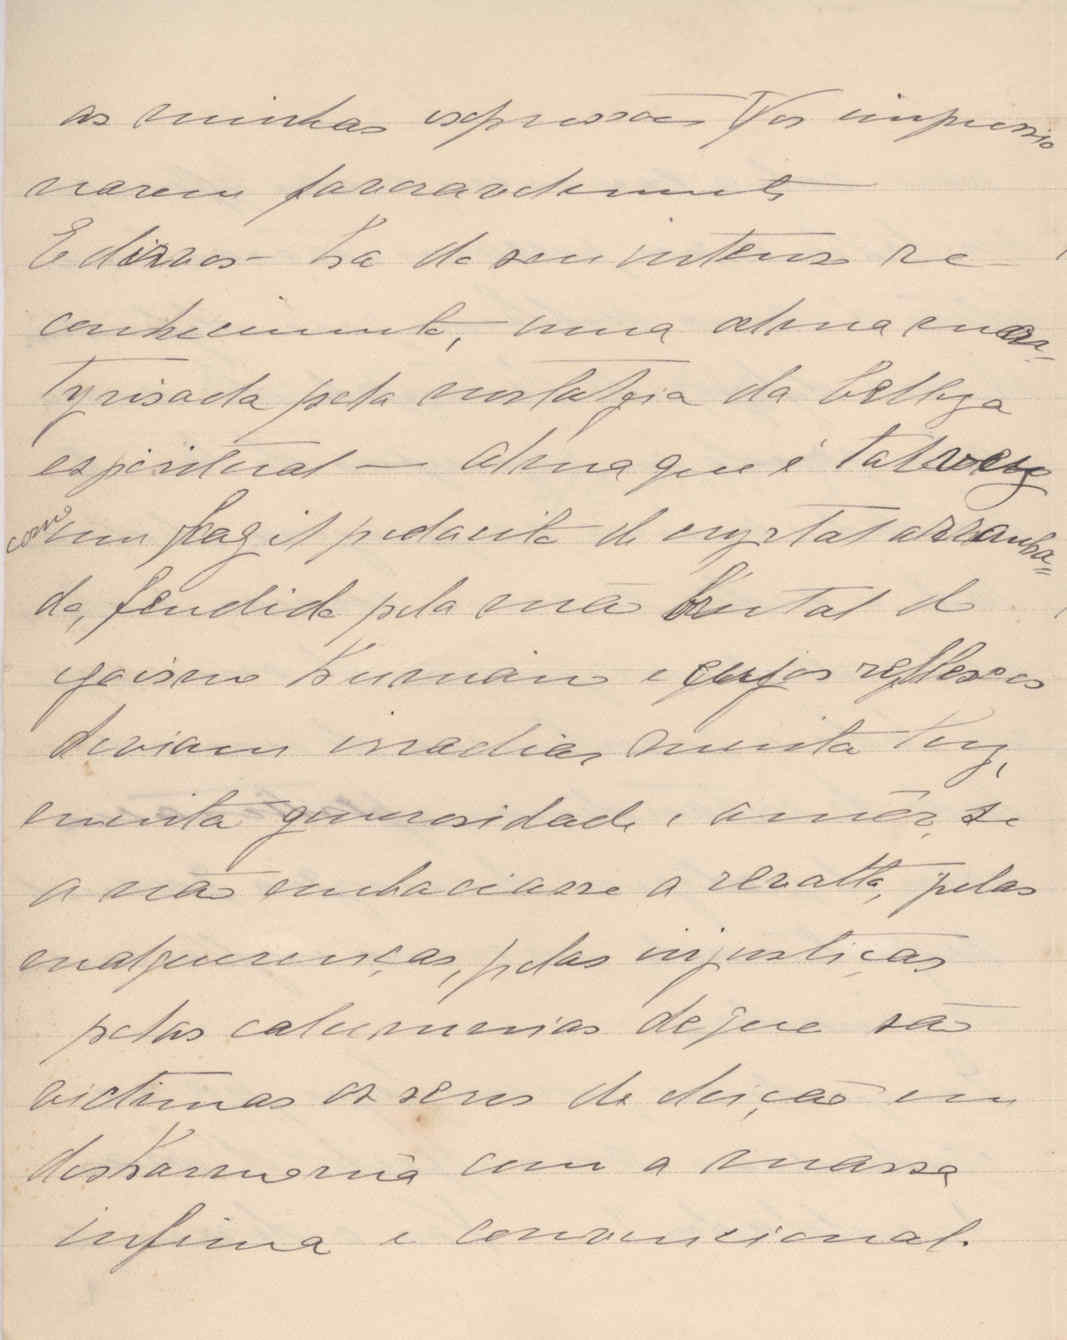 as minhas expressões Vos impressio
narem favoravelmente
E dizvos-ha de seu intenso re-
conhecimento, uma alma mar-
tyrisada pela nostalgia da belleza
espiritual — alma que é talvez
como um fragil pedacito de crystal arranha-
do, fendido pela mão brutal do
egoismo humano e cujos reflexos
deviam irradiar muita luz,
muita generosidade e amôr, se
a não embaciasse a revolta, pelas
malquerenças, pelas injustiças
pelas calumnias de que são
victimas os seres de eleição em
desharmonia com a massa
infima e convencional.